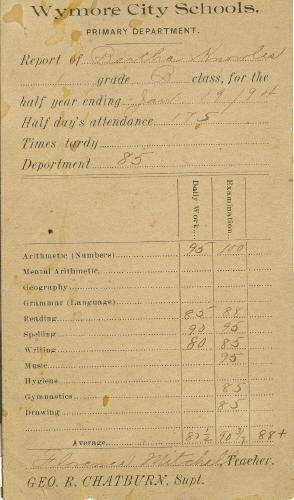 Wymore City Schools.
PRIMARY DEPARTMENT.
Report of Bertha Knowles
1 grade B class, for the
half year ending Jan 19 / 94
Half day's attendance 175
Times tardy
Department 85
Daily Work. Examination.
Arithmetic (Numbers) 95 100
Mental Arithmetic
Geography
Grammar (Language)
Reading 85 88
Spelling 90 95
Writing 80 85
Music 95
Hygiene
Gymnastics 85
Drawing 85
Average 87½ 90 3/7 88+
Florence Mitchel, Teacher.
GEO. R. CHATBURN, Supt.